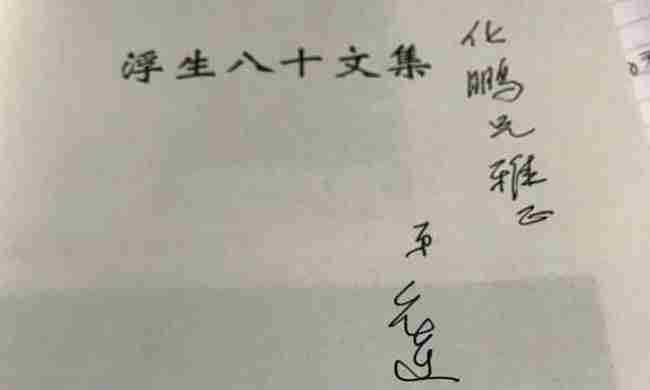 浮生八十文集
化鹏兄雅正
弟